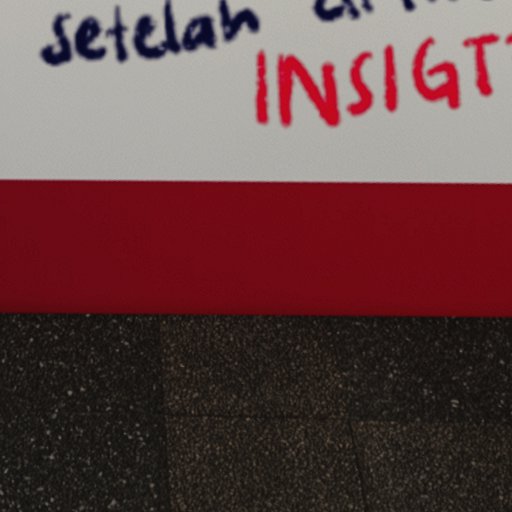 setelah
INSIGT